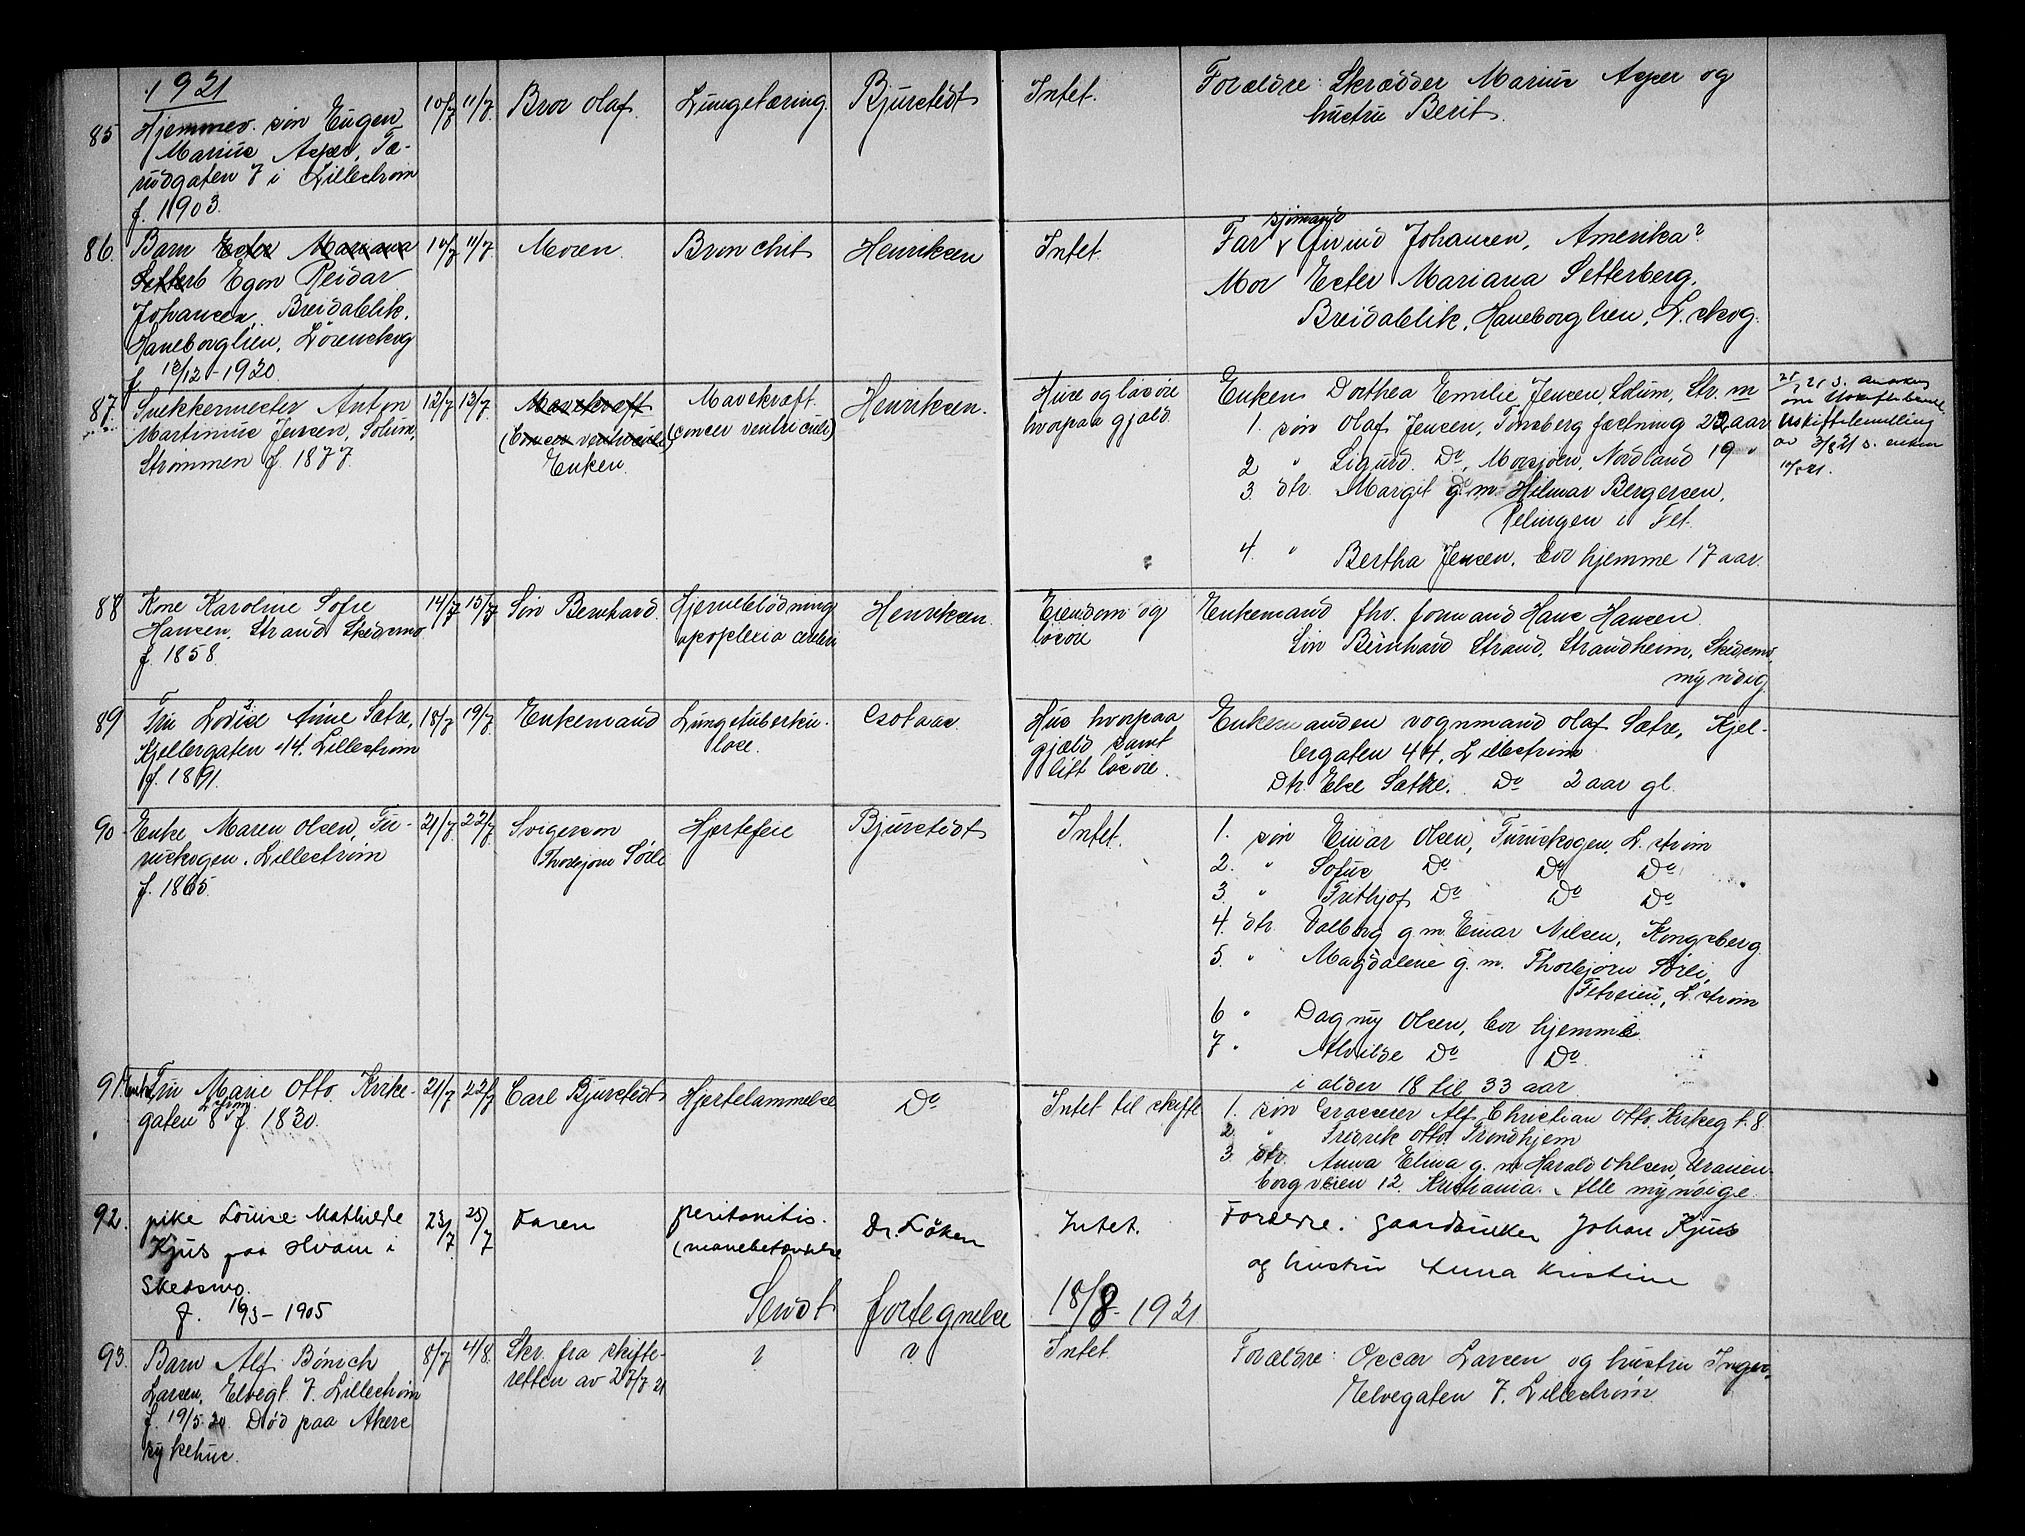 1921
85 Hjemmev. søn Eugen
Marius Asper, Tæ-
rudgaten 7 i Lillestrøm
f. 1903.
10/7 11/7 Bror Olaf. Lungetæring. Bjurstedt Intet.
Forældre: Skrædder Marius Asper og
hustru Berit.
86. Barn Ester Mariana
Setterb Egon Reidar
Johansen, Breidablik,
Haneborglien, Lørenskog
f. 12/12-1920
10/7 11/7 Moren. Bronchit Henriksen Intet.
sjømand
Far v Øivind Johansen, Amerika?
Mor Ester Mariana Setterberg,
Breidablik, Haneborglien, L.skog.
87. Snekkermester Anton
Martinius Jensen, Solum,
Strømmen f. 1877.
12/7 13/7 Mavekræft
(Cancer ventriculi)
Enken.
Mavekræft.
(cancer ventriculi)
Henriksen.
Huse og løsøre
hvorpaa gjæld.
Enken Dorthea Emilie Jensen, Solum, Str.m
1. søn Olaf Jensen, Tønsberg fæstning 22 aar
2 " Sigurd Do, Mosjøen, Nordland 19 "
3. dtr. Margit g.m. Hilmar Bergersen,
Relingen i Fet.
4. " Bertha Jensen, bor hjemme 17 aar.
Uskiftebevilling
av 3/8 21 s. enken
10/8 21.
88 Kone Karoline Sofie
Hansen, Strand Skedsmo
f. 1858.
14/7 15/7 Søn Bernhard. Hjerneblødning
apoplexia cerebri
Henriksen.
Eiendom og
løsøre
Enkemand fhv. formand Hans Hansen
Søn Bernhard Strand, Strandheim, Skedsmo,
myndig.
89 Fru Lovise Anne Sætre,
Kjellergaten 44. Lillestrøm
f. 1891.
18/7 19/7. Enkemand Lungetuberku-
lose.
Hus hvorpaa
gjæld samt
litt løsøre.
Enkemanden vognmand Olaf Sætre, Kjel-
lergaten 44, Lillestrøm
Dtr. Else Sætre. Do 2 aar gl.
90 Enke Maren Olsen, Fu-
ruskogen. Lillestrøm
f. 1865.
21/7 22/7. Svigersøn
Thorbjørn Sørli
Hjertefeil Bjurstedt Intet.
1. søn Einar Olsen, Furuskogen, L.strøm
2. " Sofus Do Do Do
3 " Frithjof Do Do Do
4. dtr. Valborg g.m. Einar Nilsen, Kongsberg
5. " Magdalene g.m. Thorbjørn Sørli,
Fetveien, L.strøm
6 " Dagmy Olsen, bor hjemme
7 " Alvilde Do Do
i alder 18 til 33 aar
91 Enke Fru Marie Otto. Kirke-
gaten 8 L.strøm f. 1830.
21/7 22/7 Carl Bjurstedt Hjertelammelse Do Intet til skifte
1. søn Grosserer Alf Christian Otto, Kirkegt. 8.
2 " Fredrik Otto, Trondhjem
3 dtr. Anna Elina g.m. Harald Ohlsen, Uranien-
borgveien 12. Kristiania. Alle myndige.
92. pike Louise Mathilde
Kjus paa Hvam i
Skedsmo.
f. 16/3-1905
23/7 25/7 Faren peritonitis.
Dr. Løken Intet.
Forældre: Gaardbruker Johan Kjus
og hustru Anna Kristine
Sendt fortegnelse 18/8-1921
93. Barn Alf Bønsch
Larsen, Elvegt 7. Lillestrøm
f. 19/5-20 Død paa Akers
sykehus.
8/7 4/8. Skr. fra skifte-
retten av 27/7 21
? ? Intet.
Forældre: Oscar Larsen og hustru Inger,
Elvegaten 7. Lillestrøm.